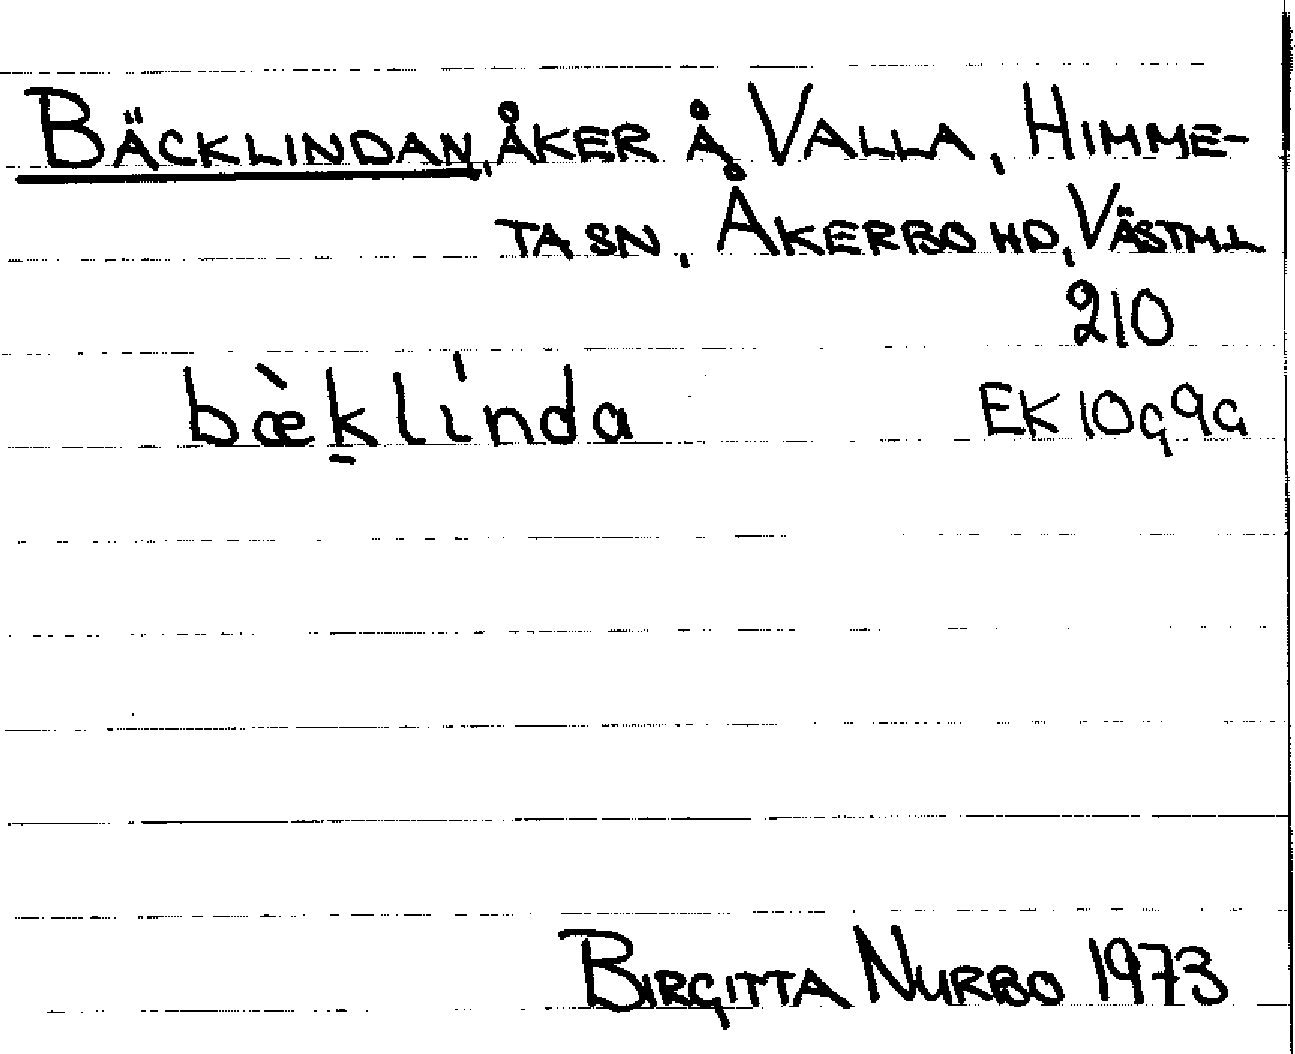 BÄCKLINDAN, ÅKER Å VALLA, HIMME-
TA SN, ÅKERBO HD, VÄSTM.L
210
bæ̀k̠lı̍nda EK 10g9a
BIRGITTA NURBO 1973